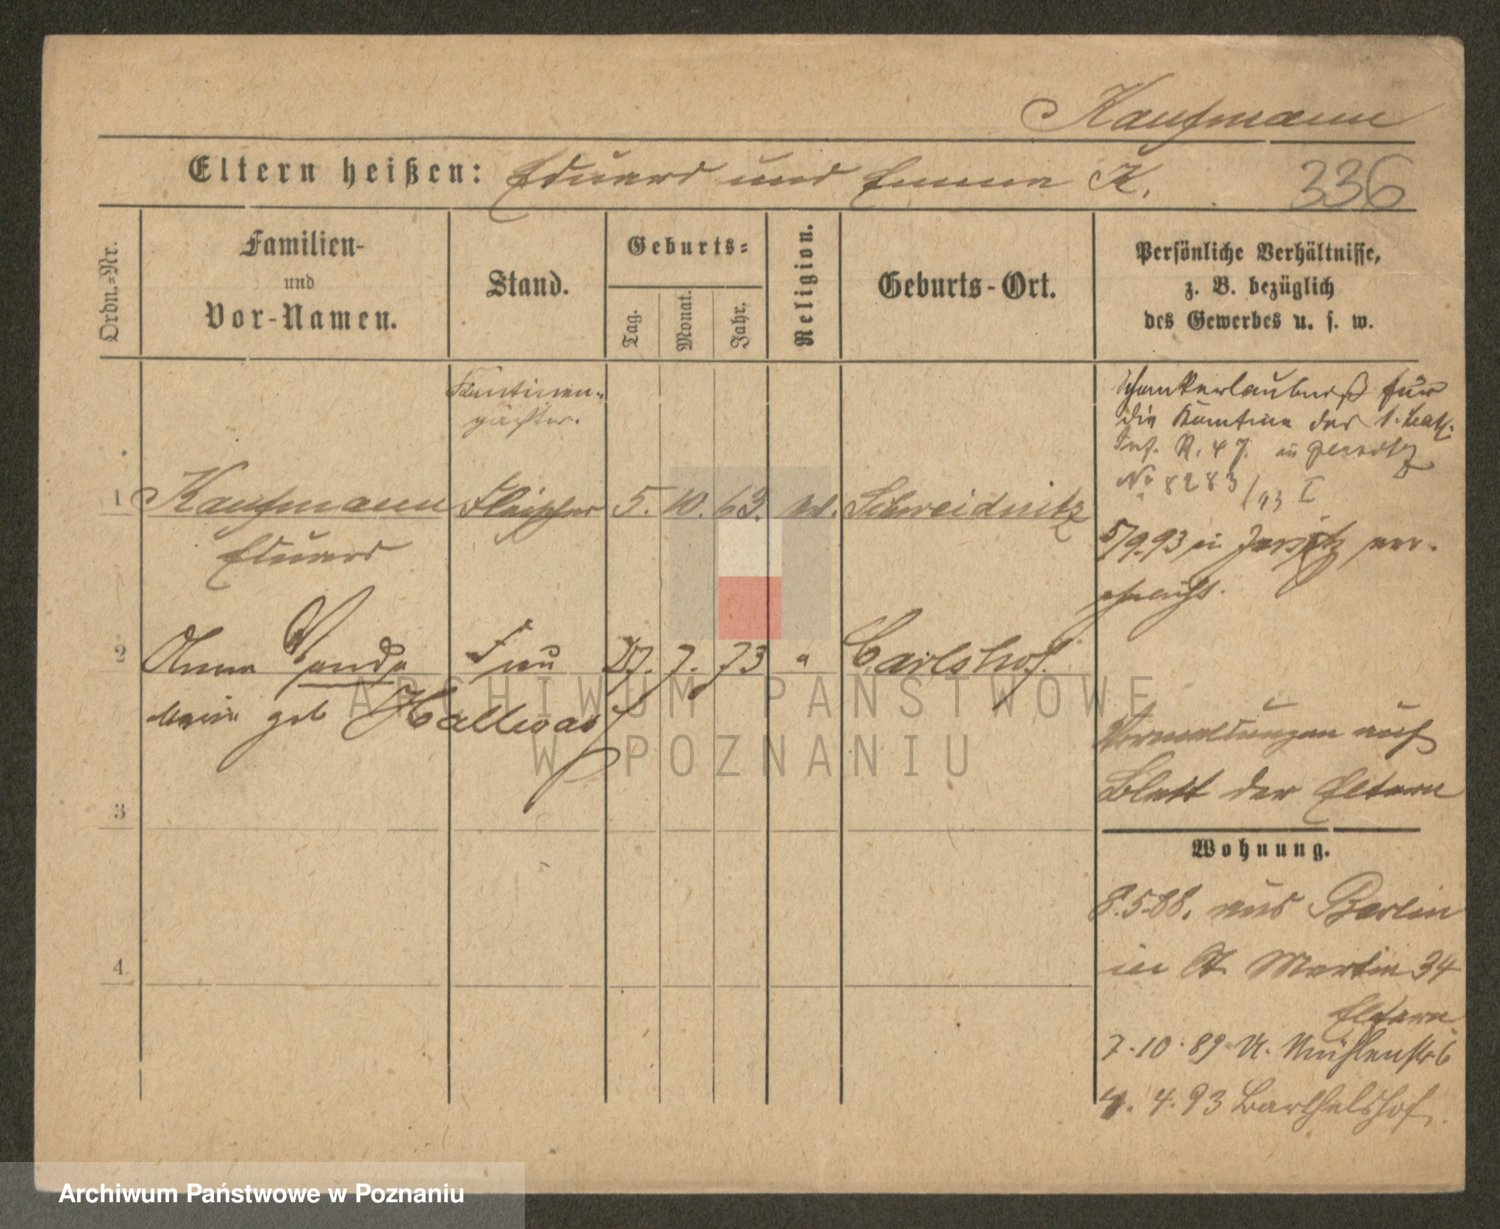 Kaufmann
Eltern heißen: Eduard und Emma K.
336
Ordn.-Nr.
Familien-
und
Vor-Namen.
Stand.
Geburts-
Tag.
Monat.
Jahr.
Religion.
Geburts-Ort.
Persönliche Verhältnisse,
z. B. bezüglich
des Gewerbes u. s. w.
Kantinen-
pächter.
1 Kaufmann Fleischer 5. 10. 63. Schweidnitz
Eduard
Schankerlaubniß für
die Kantine des 1. Bat.
Inf. R. 47. in Jersitz
No 8283/93 I
5/9.93 in Jersitz ver-
ehelicht.
2 Anna Wanda Frau 27. 7. 73 " Carlshof
geb Hallwas
Vermeldungen auf
Blatt der Eltern
3
4
Wohnung.
8.5.88. aus Berlin
in St. Martin 34
Eltern
7.10.89 U. Mühlenstr 6
4. 4. 93 Barthelshof.
ARCHIWUM PAŃSTWOWE
W POZNANIU
Archiwum Państwowe w Poznaniu